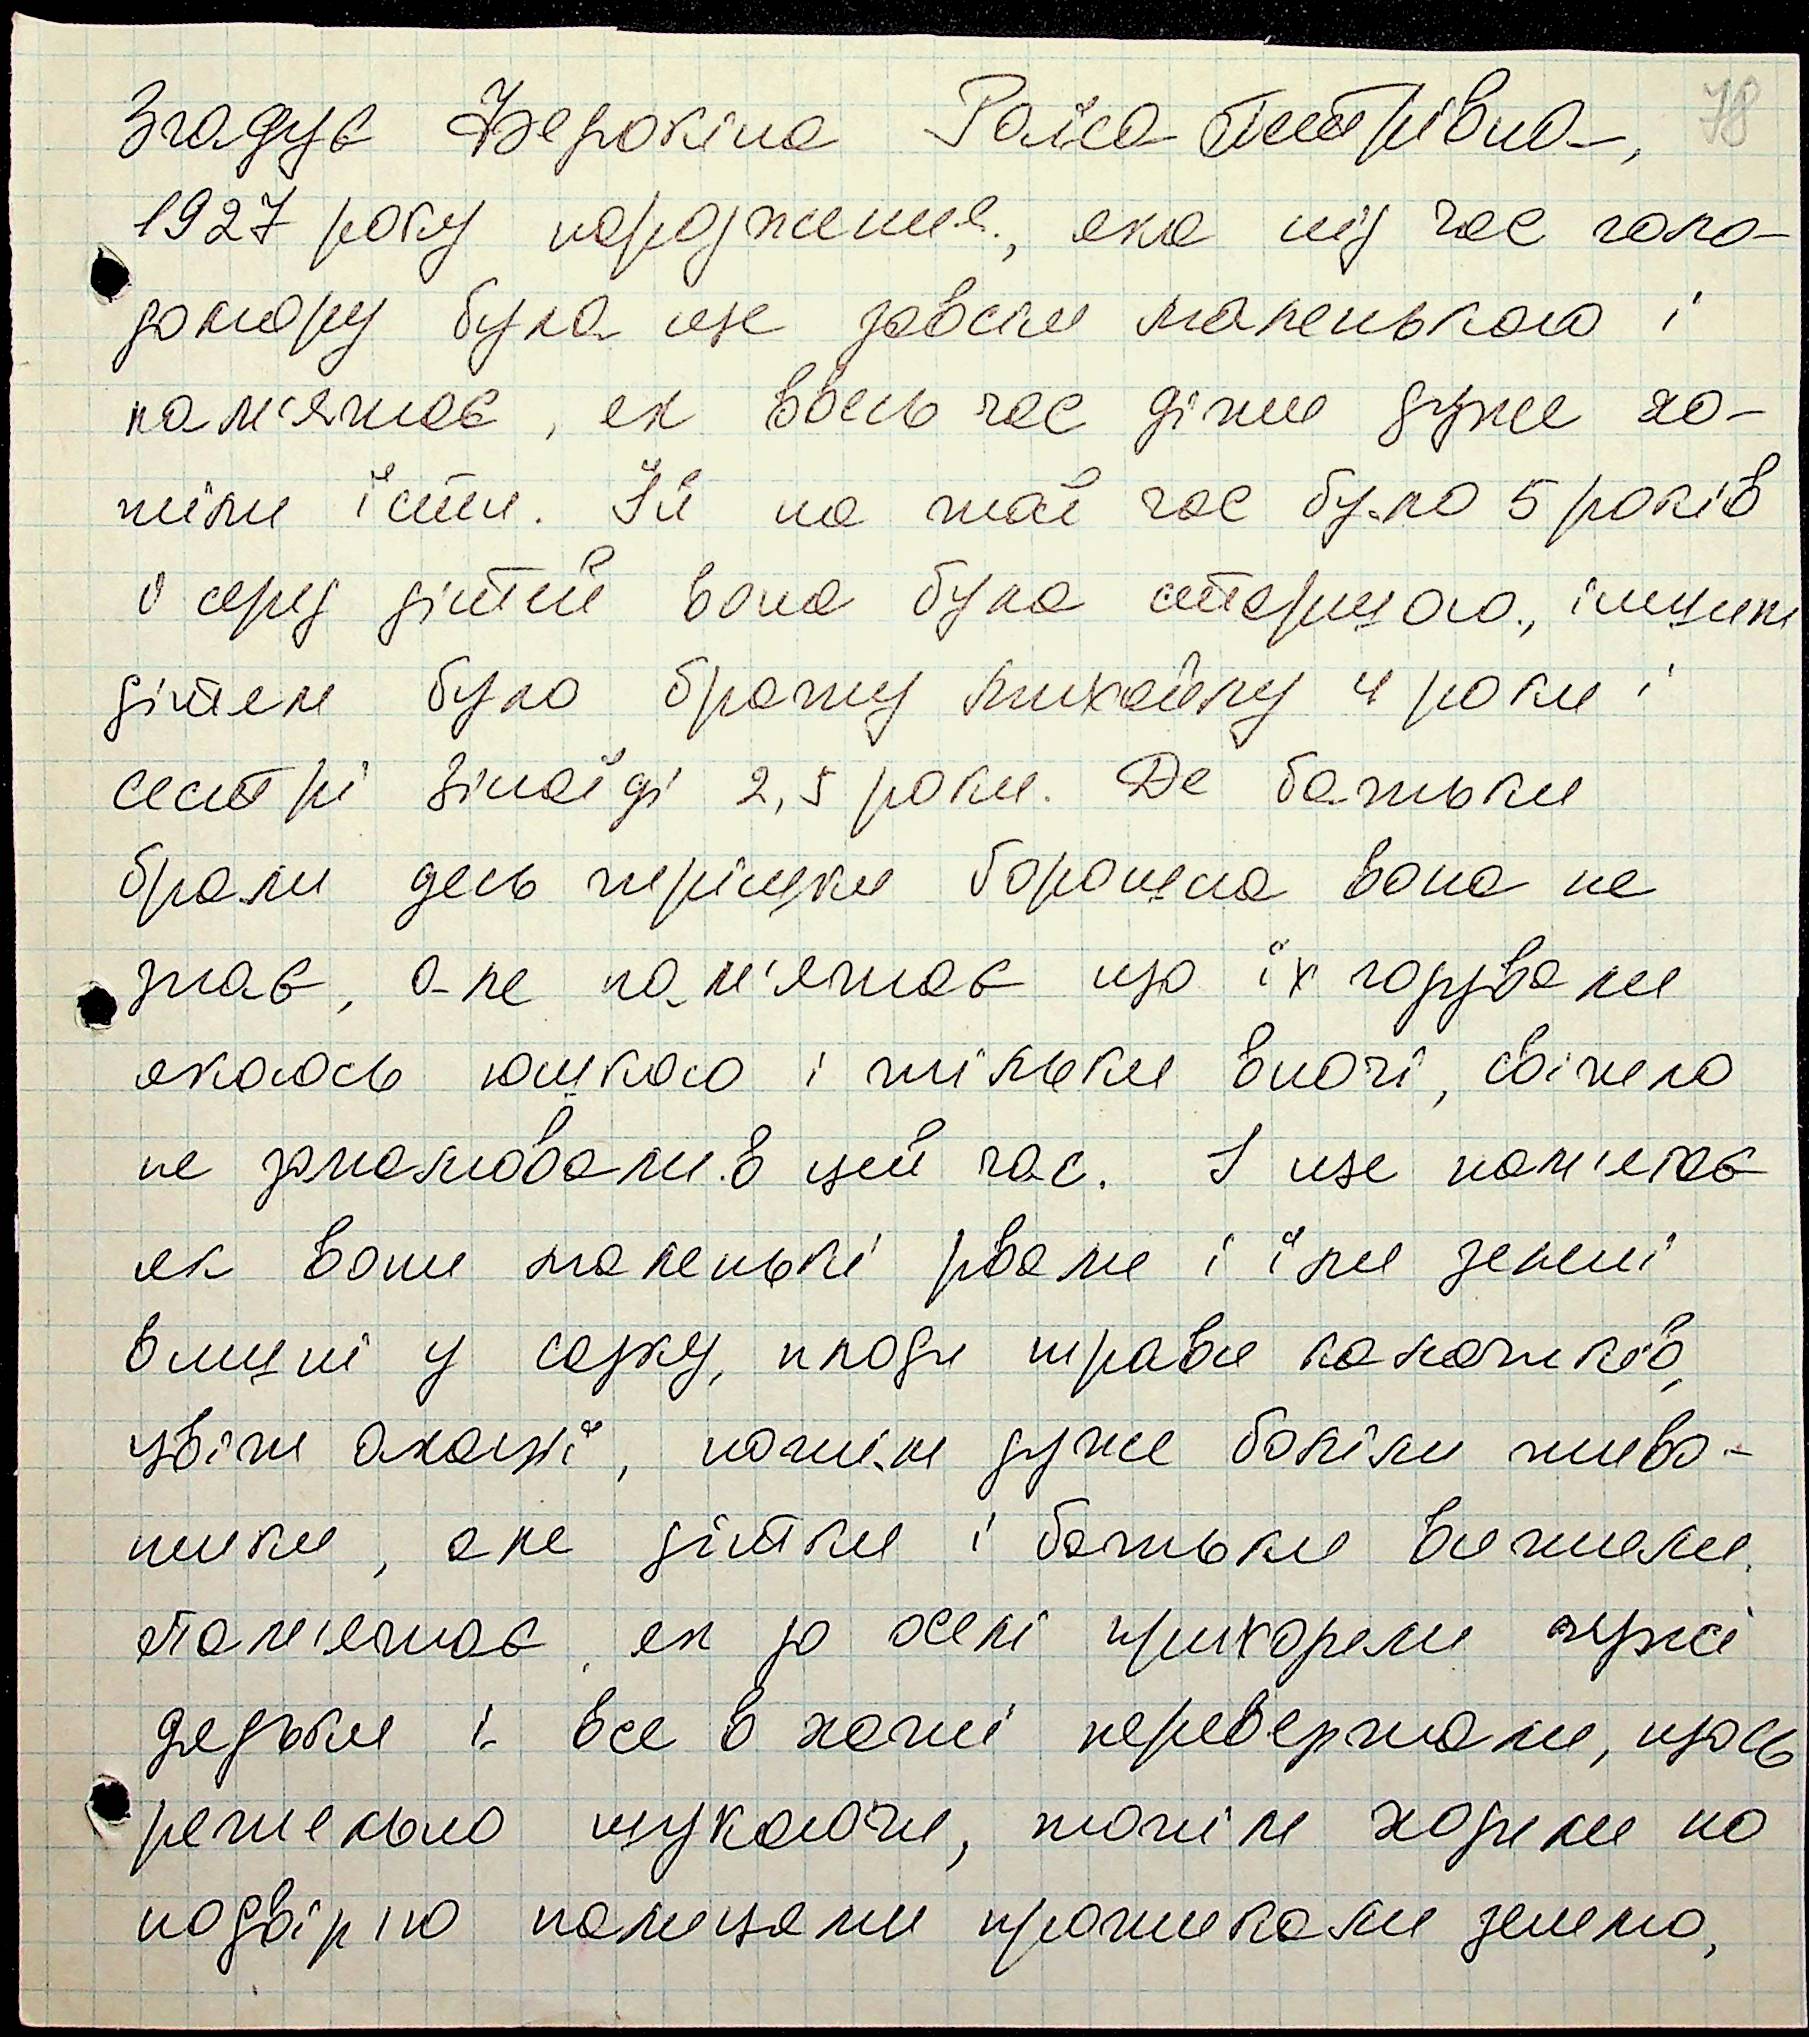 Згадує Раїса Петрівна,
78
1927 року народження, яка під час голо-
домору була ще зовсім маленькою і
пам'ятає, як ввесь час діти дуже хо-
тіли їсти. Їй на той час було 5 років
і серед дітей вона була старшою, іншим
дітям було братику Михайлу 4 роки і
сестрі Зінаїді 2,5 роки. Де батьки
брали десь трішки борошна вона не
знає, але пам'ятає що їх годували
якоюсь юшкою і тільки вночі, світло
не запалювали в цей час. І ще пам'ятає
як вони маленькі рвали і їли зелені
вишні у садку, плоди трави калачиків,
цвіт акації, потім дуже боліли живо-
тики, але дітки і батьки вижили.
Пам'ятає як до оселі приходили чужі
дядьки і все в хаті перевертали, щось
ретельно шукаючи, потім ходили по
подвір'ю палицями протикали землю,